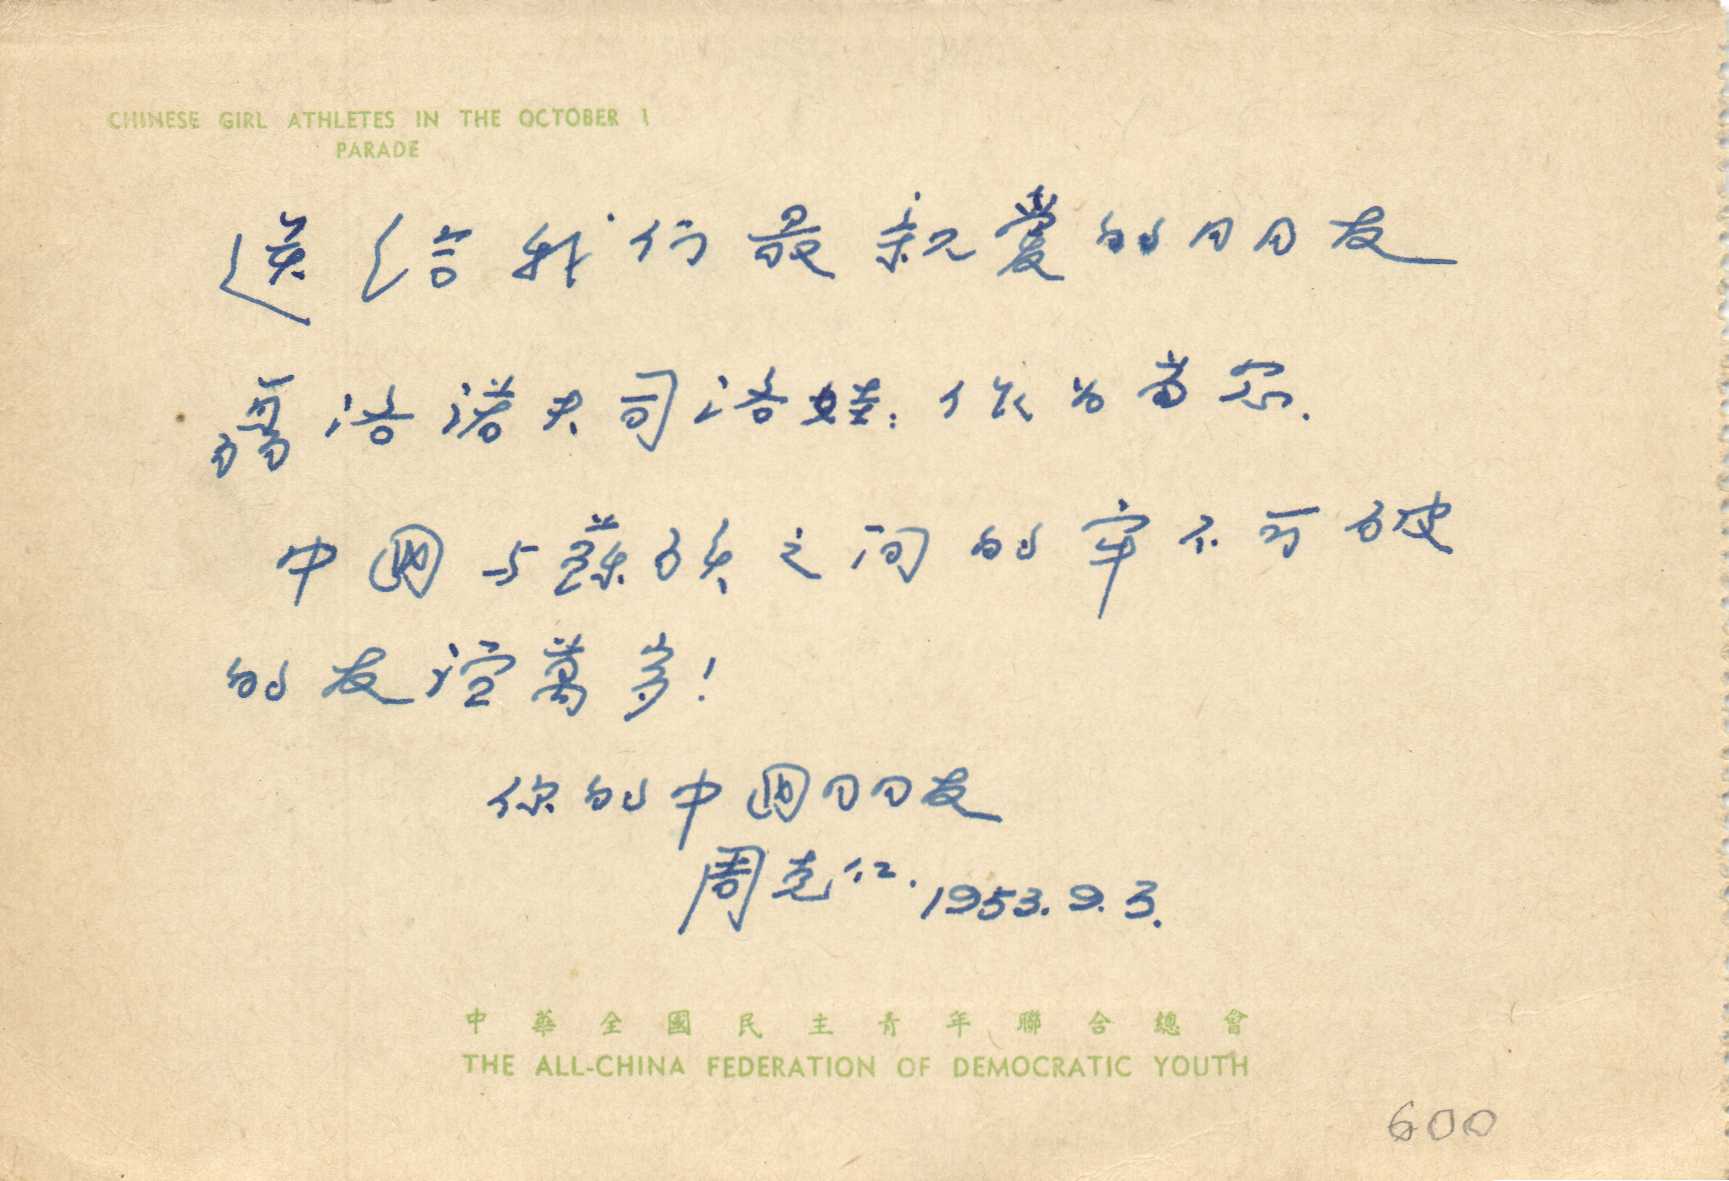 CHINESE GIRL ATHLETES IN THE OCTOBER 1
PARADE
送给我们最亲爱的朋友
洛诺夫司洛娃：作为留念.
中國与蘇联之间的牢不可破
的友谊萬岁！
你的中國朋友
周克仁. 1953.9.3.
中華全國民主青年聯合總會
THE ALL-CHINA FEDERATION OF DEMOCRATIC YOUTH
600